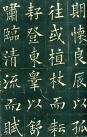 期懷良辰以孤
往或植杖而耘
耔登東皋以舒
嘯臨清流而賦